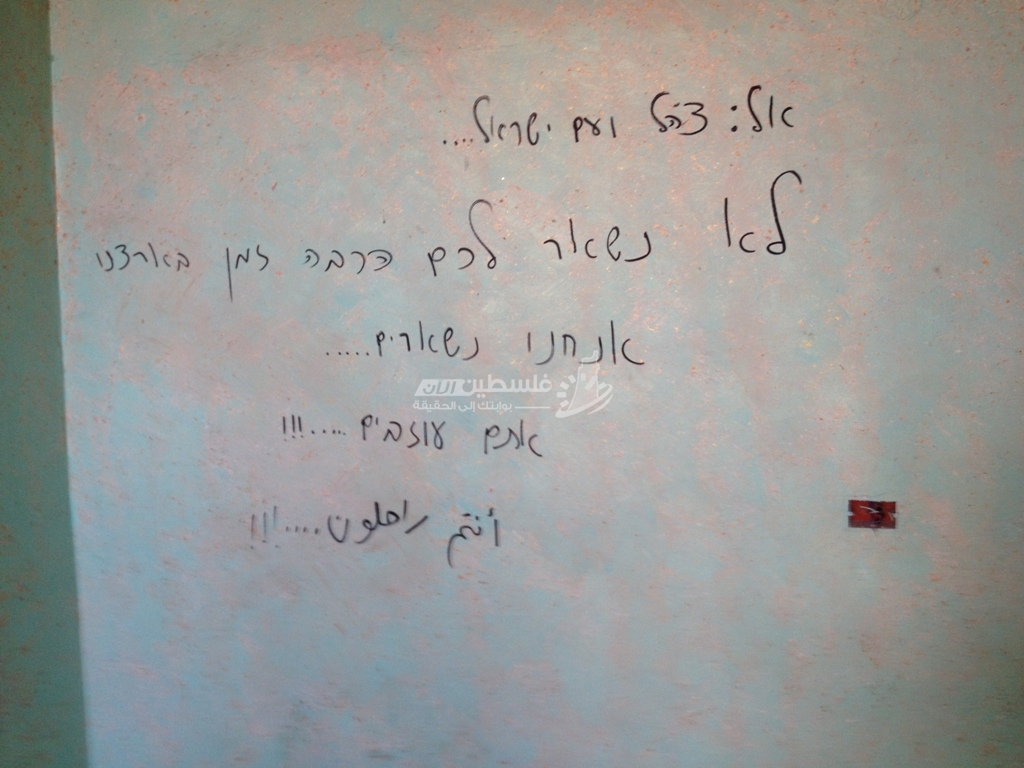 אל: צהל ועם ישראל....
לא נשאר לכם הרבה זמן בארצנו
אנחנו נשארים.....
فلسطين الآن
بوابتك إلى الحقيقة
אתם עוזבים .....!!!
أنتم راحلون....!!!